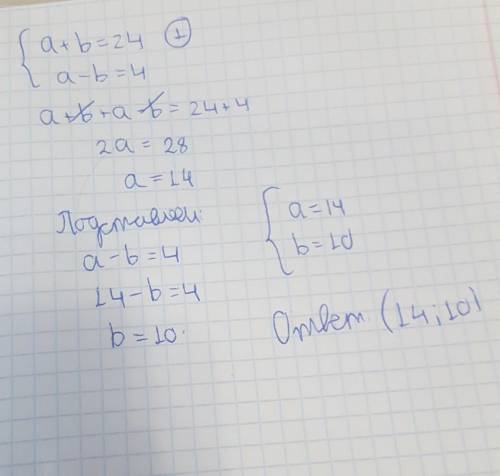 { a+b=24 ①
a-b=4
a+b+a-b=24+4
2a=28
a=14
Подставляем:
a-b=4
14-b=4
b=10.
{ a=14
b=10
Ответ (14;10)